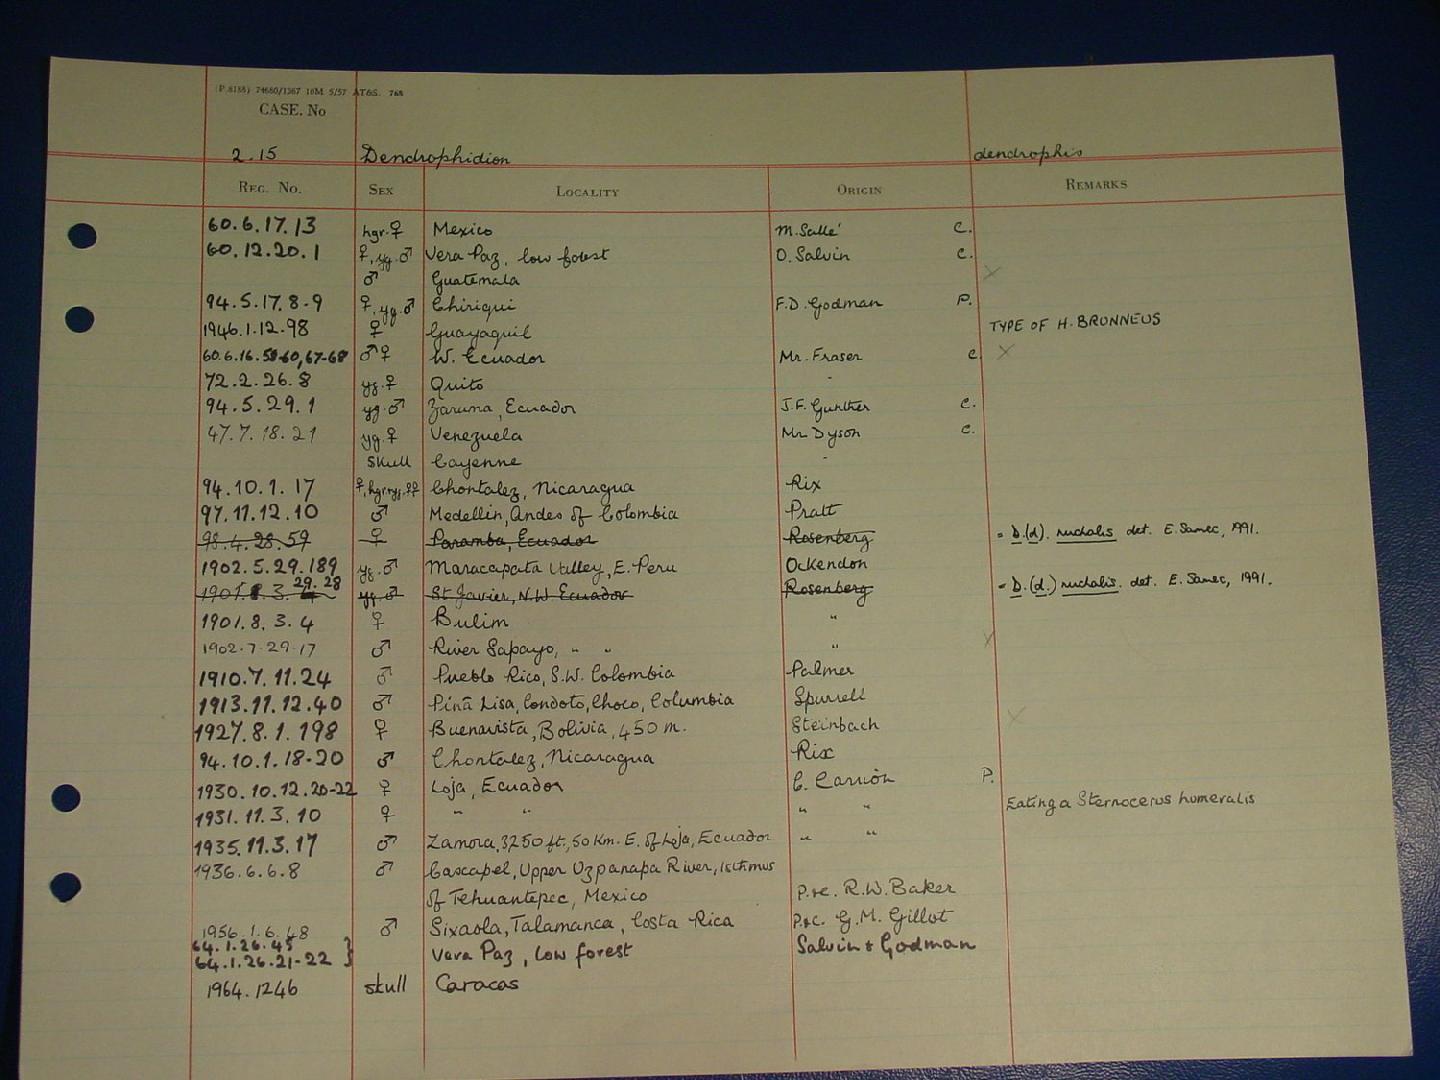 (P.8188) 74680/1367 16M 5/57 AT&S. 768
CASE. No
2.15 Dendrophidion dendrophis
REG. No. SEX LOCALITY ORIGIN REMARKS
60.6.17.13 hgr.♀ Mexico M. Sallé C.
60.12.20.1 ♀, yg.♂ Vera Paz, low forest O. Salvin C.
♂ Guatemala
94.5.17.8-9 ♀, yg.♂ Chiriqui F.D. Godman P.
1946.1.12.98 ♀ Guayaquil TYPE OF H. BRUNNEUS
60.6.16.59-60,67-68 ♂♀ W. Ecuador Mr. Fraser C.
72.2.26.8 yg.♀ Quito
94.5.29.1 yg.♂ Zaruma, Ecuador J.F. Gunther C.
47.7.18.21 yg.♀ Venezuela Mr Dyson C.
Skull Cayenne
94.10.1.17 ♀, hgr.yg.♀♀ Chontalez, Nicaragua Rix
97.11.12.10 ♂ Medellin, Andes of Colombia Pratt
98.4.28.59 ♀ Paramba, Ecuador Rosenberg = D.(d). nuchalis det. E. Samec, 1991.
1902.5.29.189 yg.♂ Maracapata Valley, E. Peru Ockendon
1901.3.29.28 yg.♂ St Javier, N.W. Ecuador Rosenberg = D.(d.) nuchalis. det. E. Samec, 1991.
1901.8.3.4 ♀ Bulim "
1902.7.29.17 ♂ River Sapayo, " " "
1910.7.11.24 ♂ Pueblo Rico, S.W. Colombia Palmer
1913.11.12.40 ♂ Pinā Lisa, Condoto, Choco, Columbia Spurrell
1927.8.1.198 ♀ Buenavista, Bolivia, 450 m. Steinbach
94.10.1.18-20 ♂ Chontalez, Nicaragua Rix
1930.10.12.20-22 ♀ Loja, Ecuador C. Carrión P.
1931.11.3.10 ♀ " " " " Eating a Sternocerus humeralis
1935.11.3.17 ♂ Zamora, 3250 ft., 50 Km. E. of Loja, Ecuador " "
1936.6.6.8 ♂ Cascapel, Upper Uzpanapa River, Isthmus
of Tehuantepec, Mexico P.&c. R.W. Baker
1956.1.6.48 ♂ Sixaola, Talamanca, Costa Rica P.&c. G.M. Gillot
64.1.26.45
64.1.26.21-22 } Vera Paz, low forest Salvin & Godman
1964.1246 skull Caracas